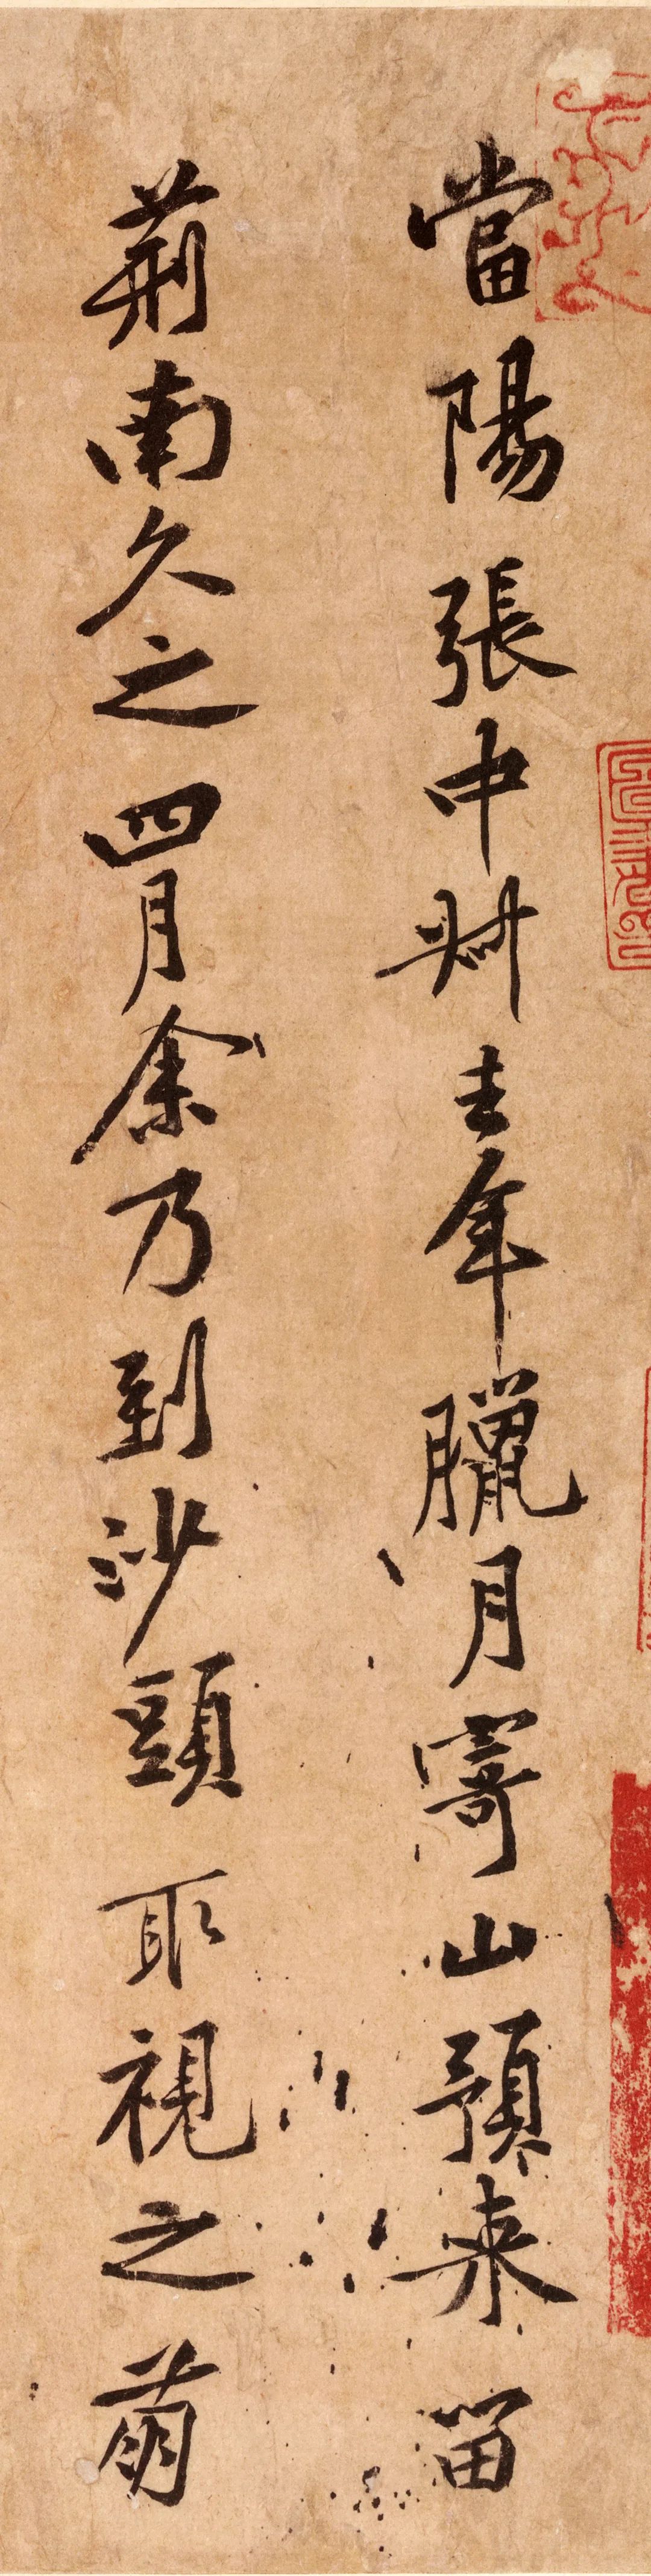 當陽張中叔去年臘月寄山預來留
荊南久之四月余乃到沙頭取視之萌